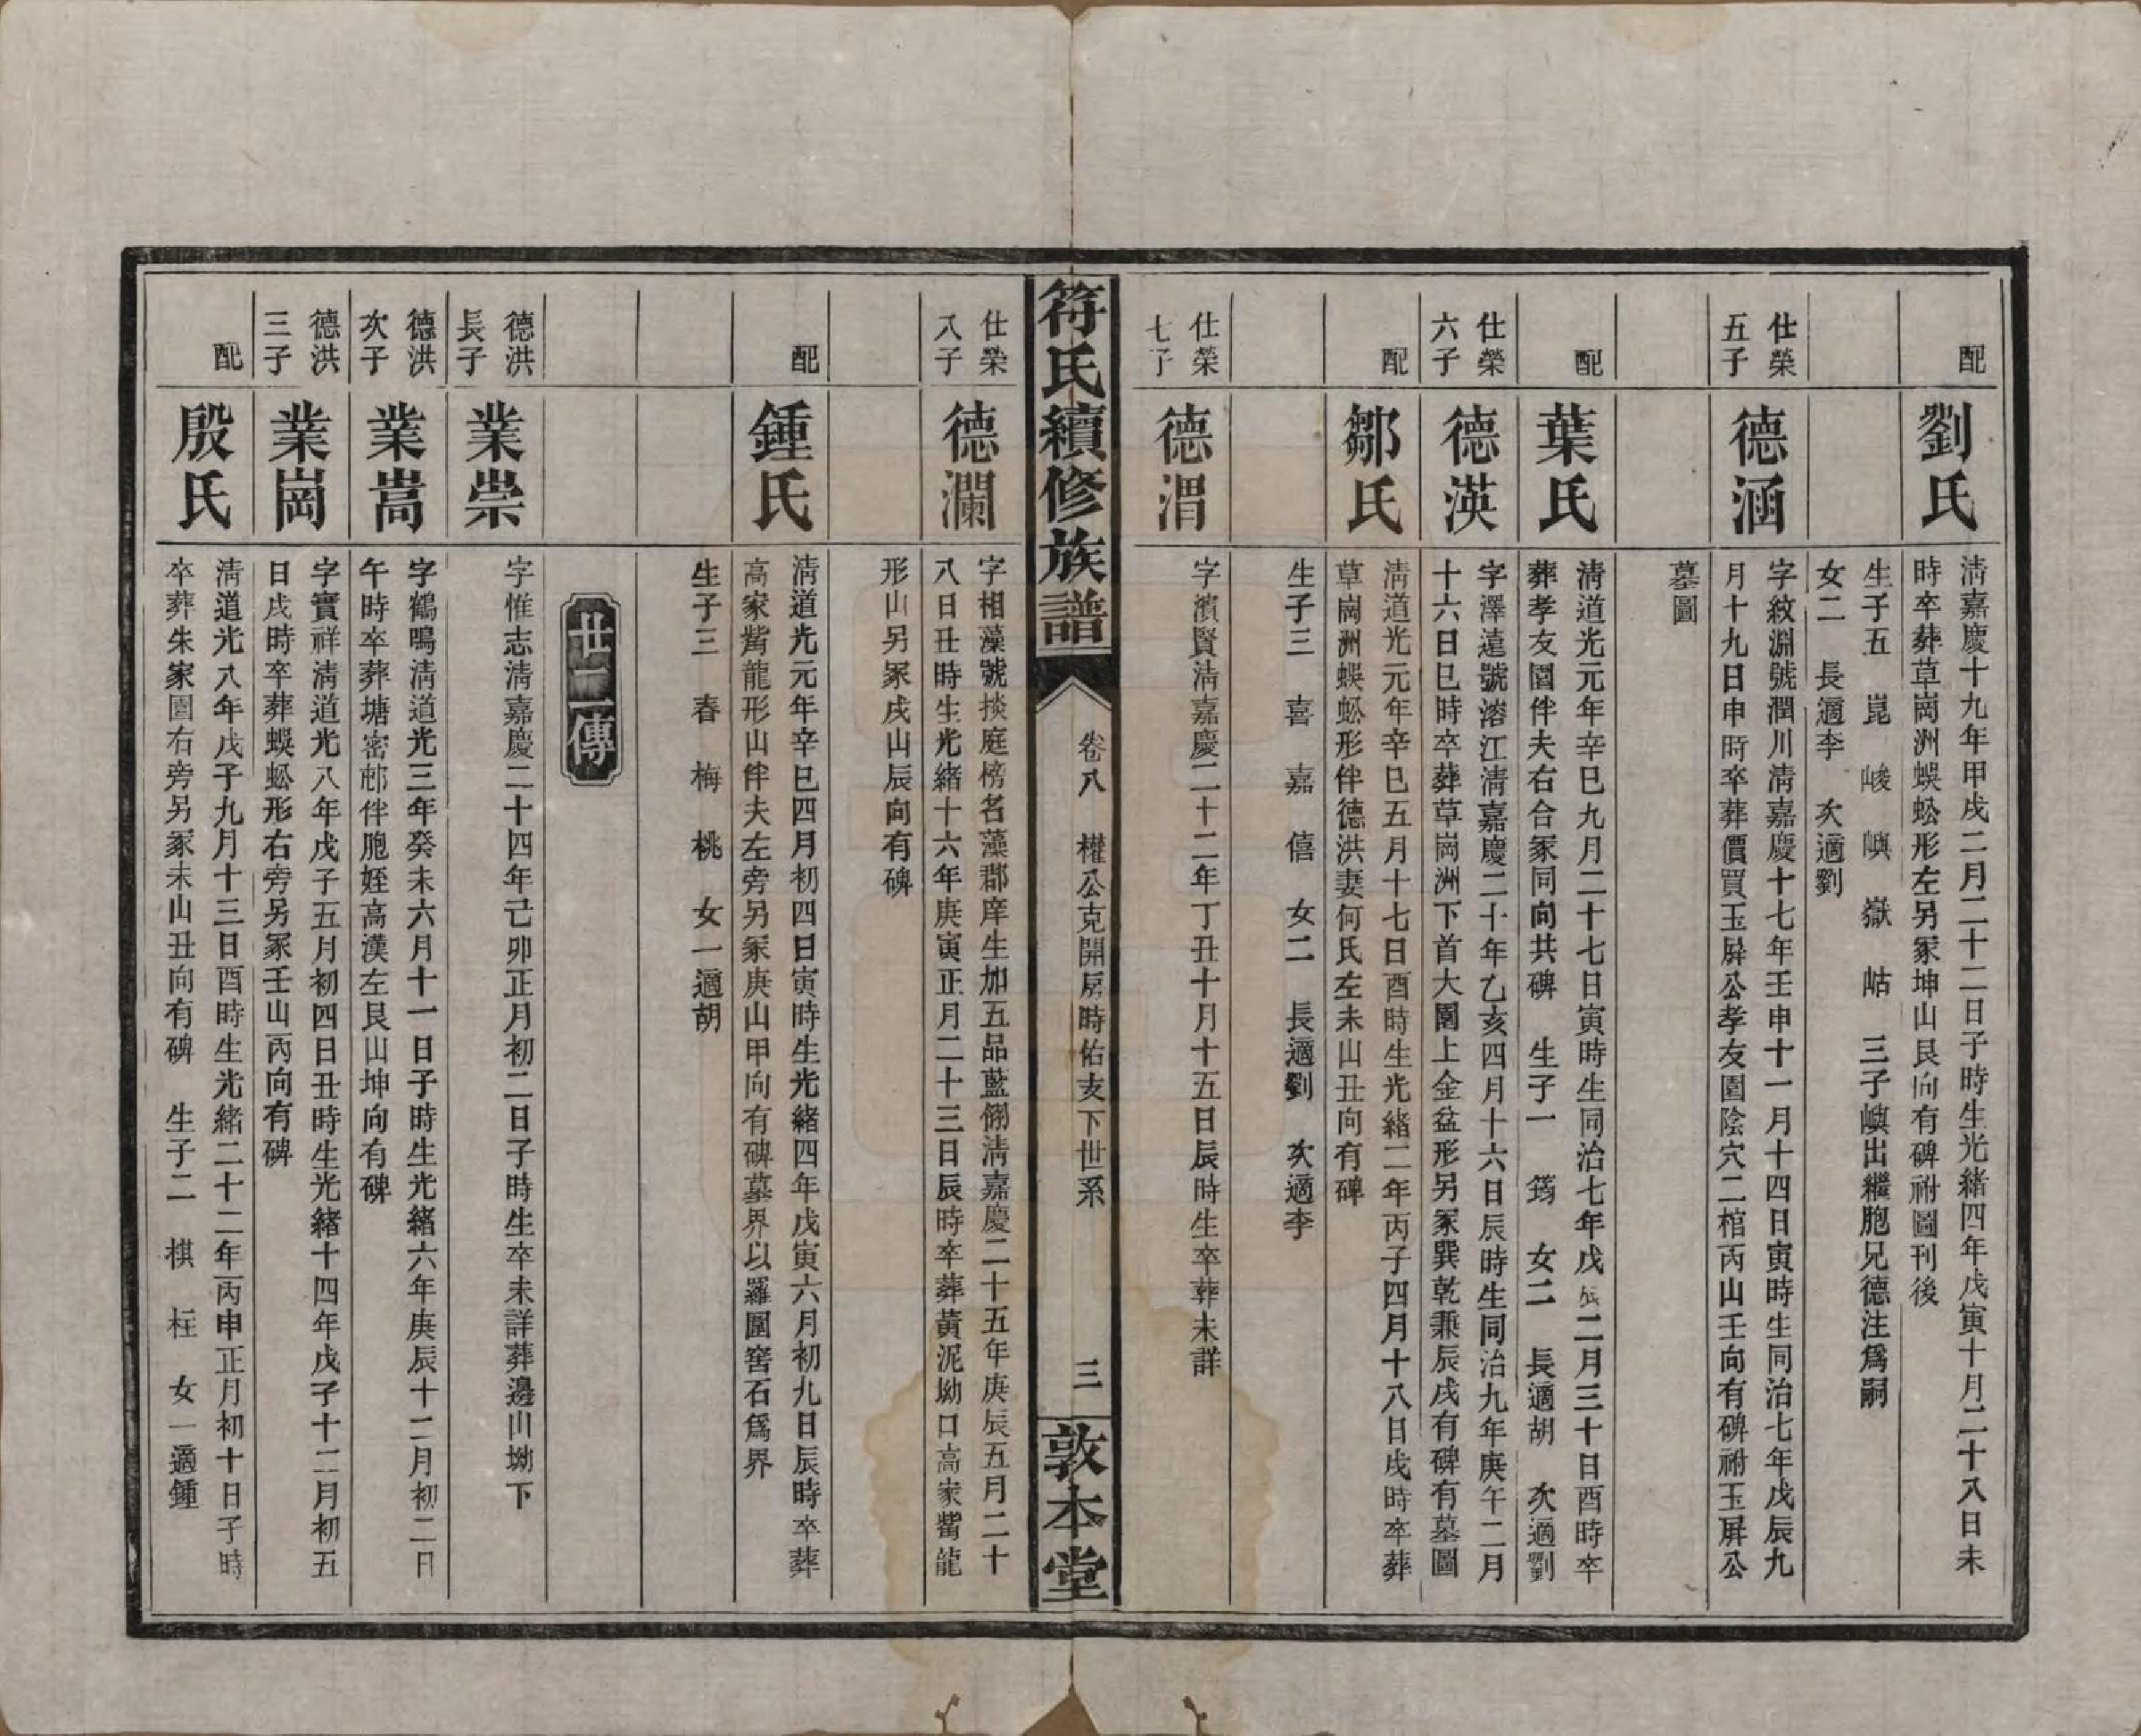 配
劉氏
清嘉慶十九年甲戌二月二十二日子時生光緒四年戊寅十月二十八日未
時卒葬草崗洲蜈蚣形左另冢坤山艮向有碑祔圖刊後
生子五　崑　峻　嶼　嶽　岵　三子嶼出繼胞兄德注爲嗣
女二　長適李　次適劉
仕榮
五子
德涵
字紋淵號潤川清嘉慶十七年壬申十一月十四日寅時生同治七年戊辰九
月十九日申時卒葬價買玉屏公孝友園陰穴二棺丙山壬向有碑祔玉屏公
墓圖
配
葉氏
清道光元年辛巳九月二十七日寅時生同治七年戊辰二月三十日酉時卒
葬孝友園伴夫右合冢同向共碑　生子一　筠　女二　長適胡　次適劉
仕榮
六子
德渶
字澤遠號溶江清嘉慶二十年乙亥四月十六日辰時生同治九年庚午二月
十六日巳時卒葬草崗洲下首大園上金盆形另冢巽乾兼辰戌有碑有墓圖
配
鄒氏
清道光元年辛巳五月十七日酉時生光緒二年丙子四月十八日戌時卒葬
草崗洲蜈蚣形伴德洪妻何氏左未山丑向有碑
生子三　喜　嘉　僖　女二　長適劉　次適李
仕榮
七子
德渭
字濱賢清嘉慶二十二年丁丑十月十五日辰時生卒葬未詳
符氏續修族譜
卷八　權公克開房時佑支下世系
三
敦本堂
仕榮
八子
德瀾
字相藻號掞庭榜名藻郡庠生加五品藍翎清嘉慶二十五年庚辰五月二十
八日丑時生光緒十六年庚寅正月二十三日辰時卒葬黃泥坳口高家觜龍
形山另冢戌山辰向有碑
配
鍾氏
清道光元年辛巳四月初四日寅時生光緒四年戊寅六月初九日辰時卒葬
高家觜龍形山伴夫左旁另冢庚山甲向有碑墓界以羅圍窖石爲界
生子三　春　梅　桃　女一適胡
廿二傳
德洪
長子
業崇
字惟志清嘉慶二十四年己卯正月初二日子時生卒未詳葬邊山坳下
德洪
次子
業嵩
字鶴鳴清道光三年癸未六月十一日子時生光緒六年庚辰十二月初二日
午時卒葬塘密邨伴胞姪高漢左艮山坤向有碑
德洪
三子
業崗
字寶祥清道光八年戊子五月初四日丑時生光緒十四年戊子十二月初五
日戌時卒葬蜈蚣形右旁另冢壬山丙向有碑
配
殷氏
清道光八年戊子九月十三日酉時生光緒二十二年丙申正月初十日子時
卒葬朱家園右旁另冢未山丑向有碑　生子二　棋　枉　女一適鍾